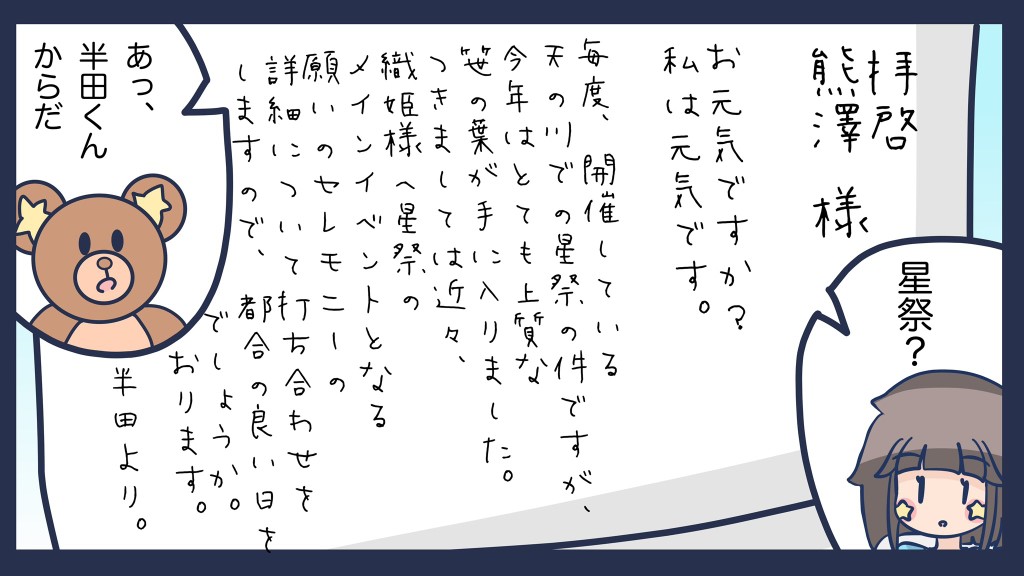 拝啓
熊澤 様
お元気ですか?
私は元気です。
毎度、開催している
天の川での星祭の件ですが、
今年はとても上質な
笹の葉が手に入りました。
つきましては近々、
織姫様へ星祭の
メインイベントとなる
願いのセレモニーの
詳細について打ち合わせを
しますので、都合の良い日を
でしょうか。
おります。
半田より。
星祭?
あっ、
半田くん
からだ